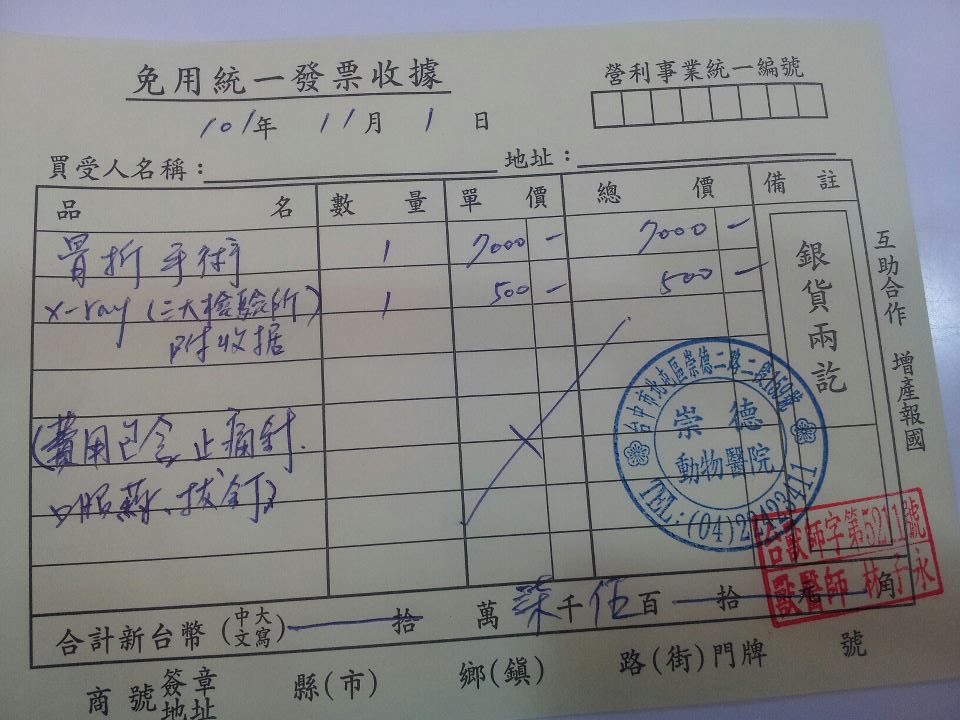 免用統一發票收據
營利事業統一編號
101年 11月 1日
買受人名稱： 地址：
品名 數量 單價 總價 備註
骨折手術 1 7000 — 7000 —
x-ray (三大檢驗所) 1 500 — 500 —
附收据
(費用已含止痛針.
口服藥、拔釘)
銀貨兩訖
互助合作 增產報國
台中市北屯區崇德二路二段159號
崇德
動物醫院
TEL:(04)22423411
獸師字第5211號
獸醫師 林子永
合計新台幣(中文大寫) 拾 萬 柒千 伍百 拾 元 角
商號簽章地址 縣(市) 鄉(鎮) 路(街)門牌 號